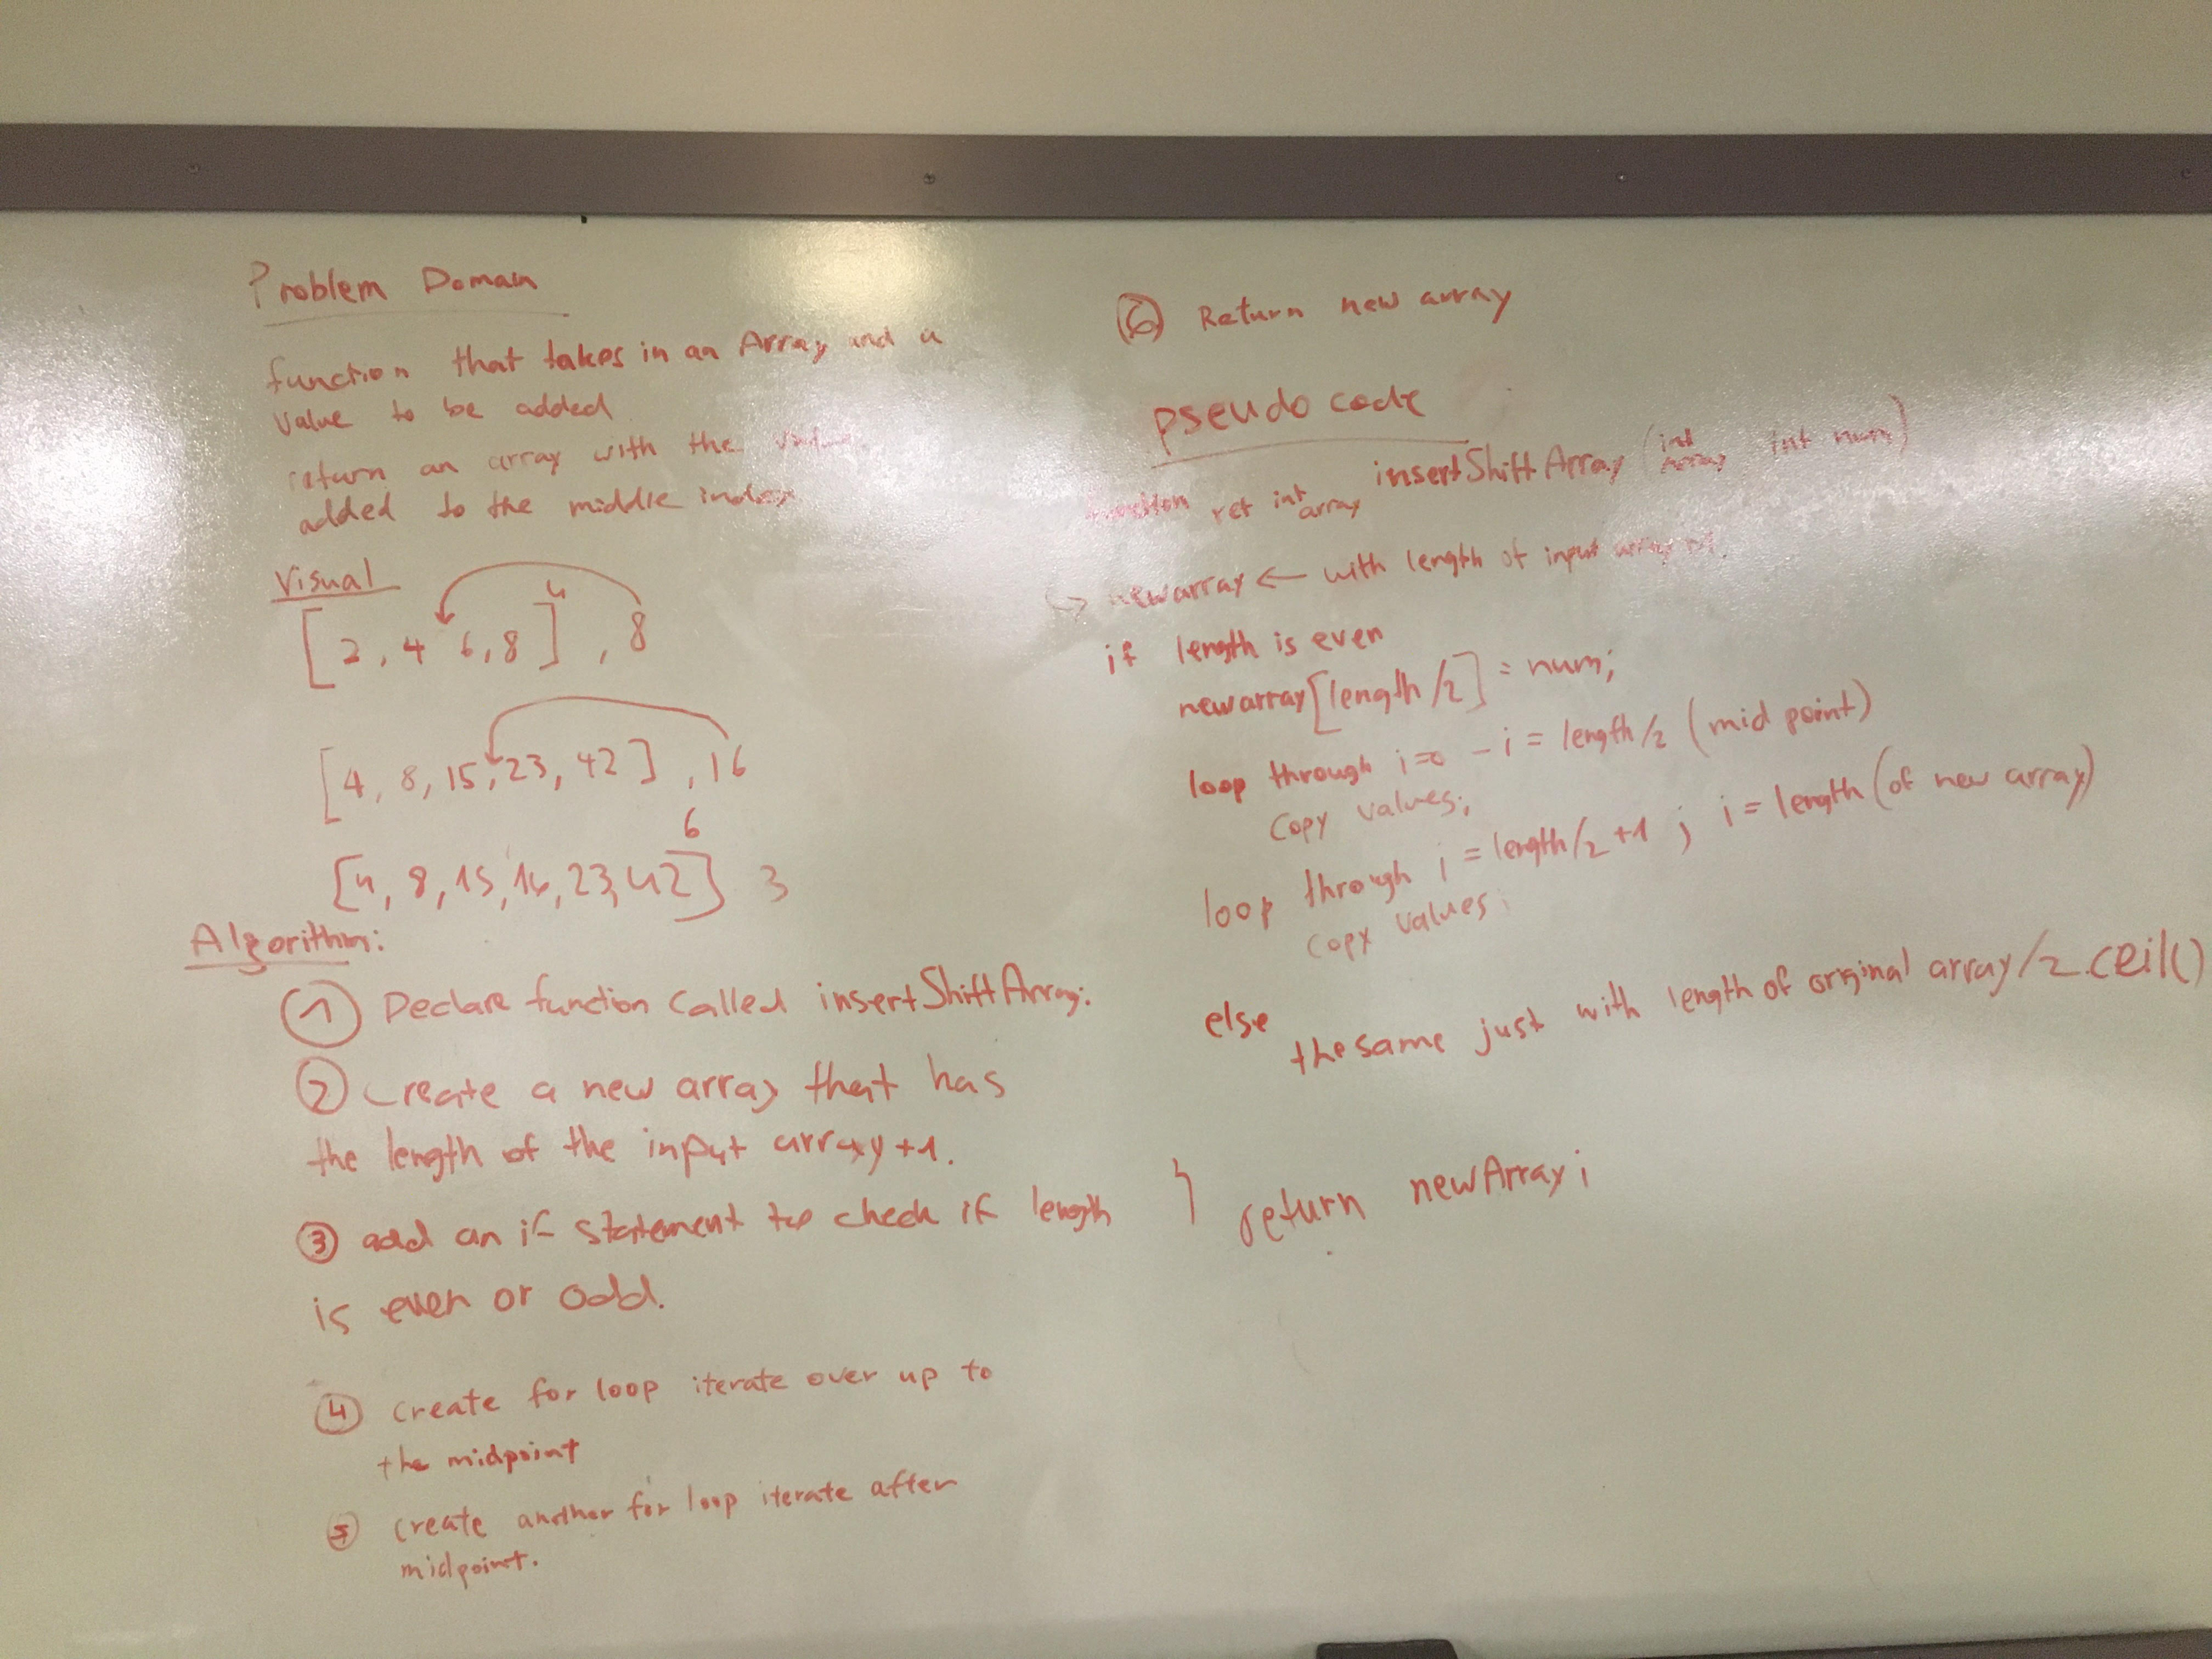 Problem Domain
function that takes in an Array and a
value to be added
return an array with the value
added to the middle index
Visual
4
[2, 4 6, 8] , 8
[4, 8, 15, 23, 42] , 16
6
[4, 8, 15, 16, 23, 42] 3
Algorithm:
① Declare function called insertShiftArray:
② Create a new array that has
the length of the input array +1.
③ add an if statement to check if length
is even or odd.
④ create for loop iterate over up to
the midpoint
⑤ create another for loop iterate after
midpoint.
⑥ Return new array
pseudo code
function ret int array insertShiftArray (int array int num)
↪ newarray ← with length of input array
if length is even
newarray[length/2] = num;
loop through i=0 - i = length/2 (mid point)
copy values;
loop through i = length/2 +1 ; i = length (of new array)
copy values;
else
the same just with length of original array/2.ceil()
} return newArray;